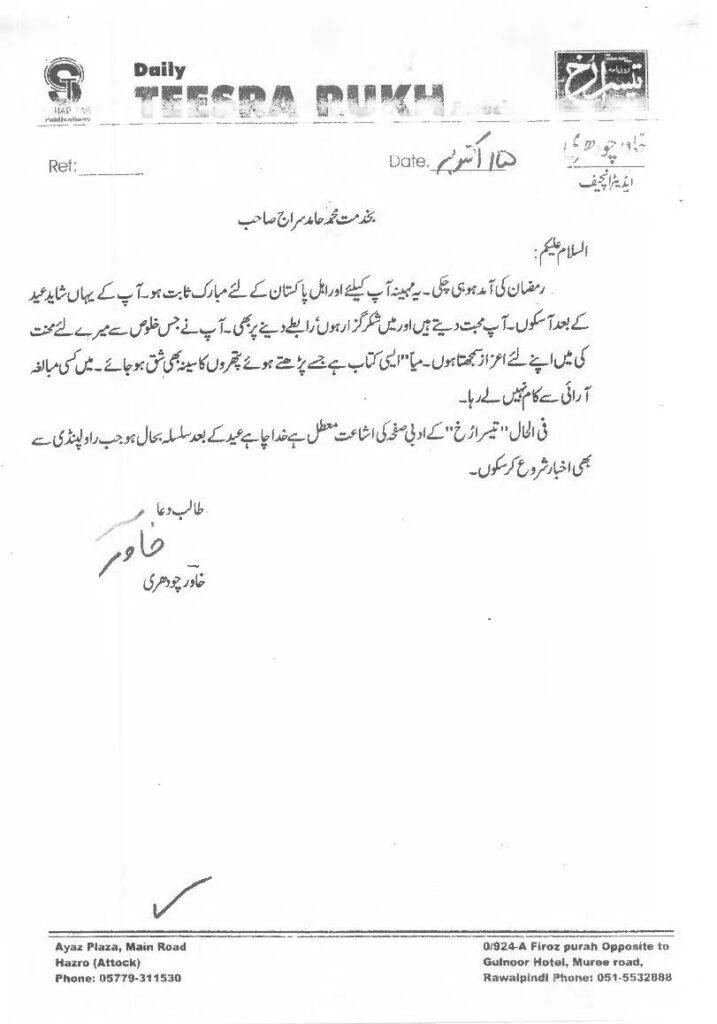 Daily
TEESRA RUKH
روزنامہ
تیسرا رخ
Publications
Ref:
Date. ۱۵ اکتوبر
خاور چودھری
ایڈیٹر انچیف
بخدمت محمد حامد سراج صاحب
السلام علیکم:
رمضان کی آمد ہو ہی چکی۔ یہ مہینہ آپ کیلئے اور اہل پاکستان کے لئے مبارک ثابت ہو۔ آپ کے یہاں شاید عید
کے بعد آسکوں۔ آپ محبت دیتے ہیں اور میں شکر گزار ہوں رابطے دینے پر بھی۔ آپ نے جس خلوص سے میرے لئے محنت
کی میں اپنے لئے اعزاز سمجھتا ہوں۔ میا" ایسی کتاب ہے جسے پڑھتے ہوئے پتھروں کا سینہ بھی شق ہو جائے۔ میں کسی مبالغہ
آرائی سے کام نہیں لے رہا۔
فی الحال "تیسرا رُخ" کے ادبی صفحہ کی اشاعت معطل ہے خدا چاہے عید کے بعد سلسلہ بحال ہو جب راولپنڈی سے
بھی اخبار شروع کر سکوں۔
طالب دعا
خاور
خاور چودھری
Ayaz Plaza, Main Road
Hazro (Attock)
Phone: 05779-311530
0/924-A Firoz purah Opposite to
Gulnoor Hotel, Muree road,
Rawalpindi Phone: 051-5532888